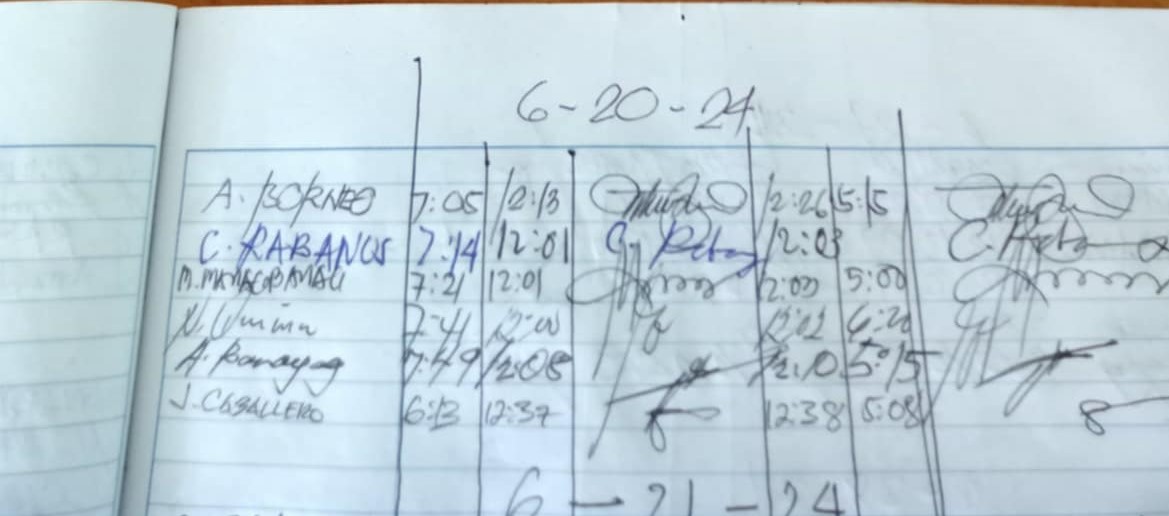 6-20-24
A. BORNEO 7:05 12:13 12:26 5:15
C. RABANOS 7:14 12:01 C. 12:03 C.
M. 7:21 12:01 12:00 5:00
N. 7:41 12:00 12:02 6:20
A. 7:49 12:08 12:10 5:15
J. CABALLERO 6:13 12:37 12:38 5:08
6-21-24